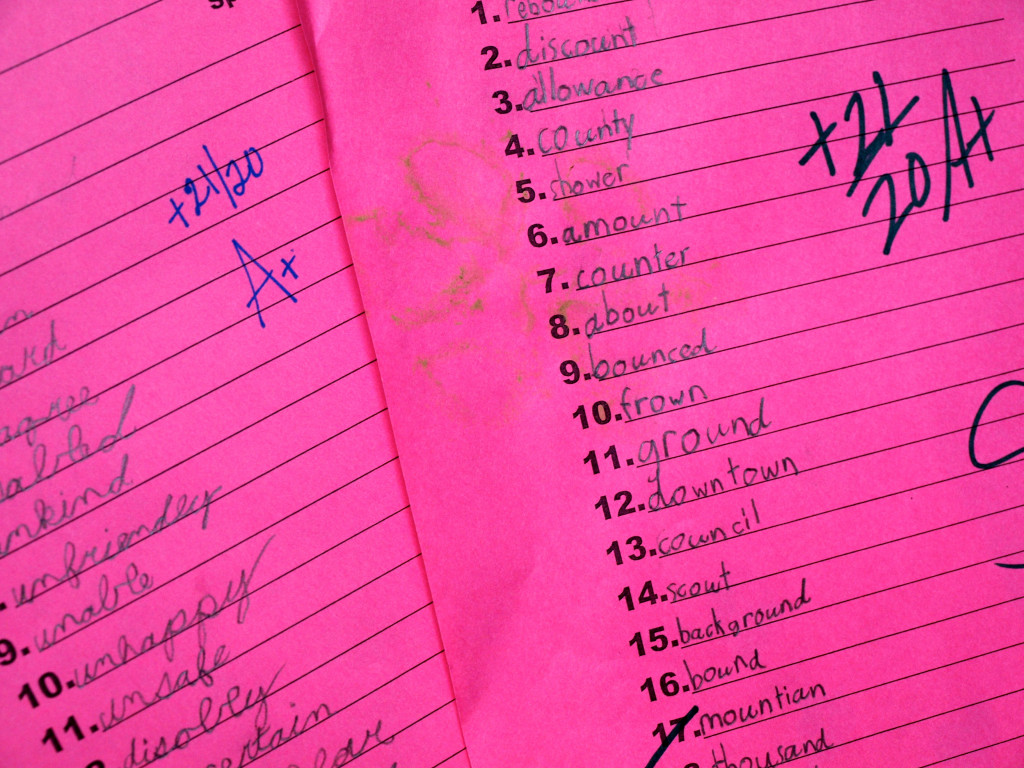 +21/20
A+
unkind
unfriendly
9. unable
10. unhappy
11. unsafe
disobley
1. rebound
2. discount
3. allowance
4. county
5. shower
6. amount
7. counter
8. about
9. bounced
10. frown
11. ground
12. downtown
13. council
14. scout
15. background
16. bound
17. mountian
thousand
+21
20 A+